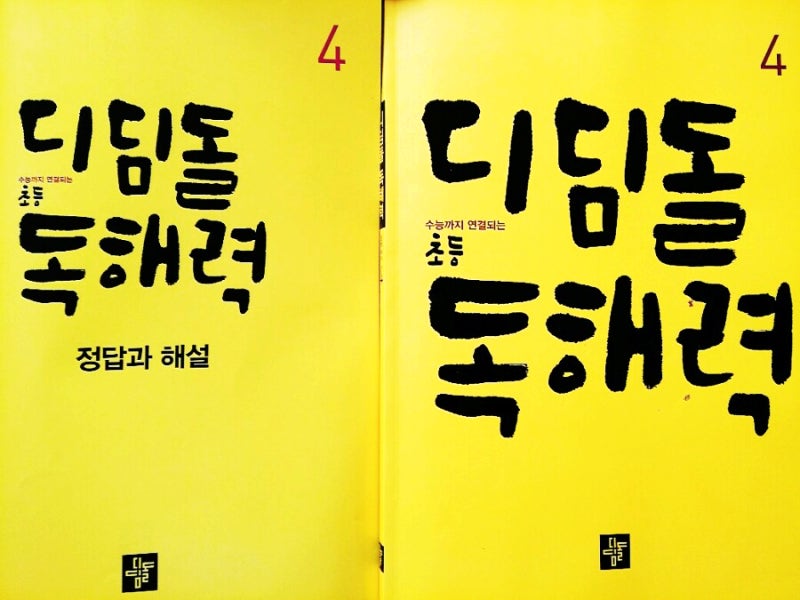 4
디딤돌
수능까지 연결되는
초등
독해력
정답과 해설
디딤돌
4
디딤돌
수능까지 연결되는
초등
독해력
디딤돌